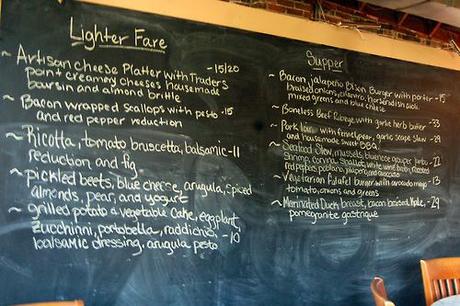 Lighter Fare
~ Artisan cheese Platter with Traders -15/20
point creamery cheeses housemade
boursin and almond brittle
~ Bacon wrapped scallops with pesto -15
and red pepper reduction
~ Ricotta, tomato bruscetta, balsamic -11
reduction and fig
~ pickled beets, blue cheese, arugula, spiced
almonds, pear, and yogurt
~ grilled potato & vegetable cake, eggplant,
zucchini, portobella, raddichio, -10
balsamic dressing, arugula pesto
Supper
~ Bacon, jalapeño Bison Burger with porter -15
braised onions, cheddar, horseradish aioli
mixed greens and blue cheese
~ Boneless Beef Ribeye with garlic herb butter -33
~ Pork loin with fennel, pear, garlic scape slaw -29
and housemade sweet BBQ
~ Seafood Stew, mussels, bluenose grouper, -22
Shrimp, corn, shallot, white wine broth, roasted
red peppers, potatoes, jalapeno, and avocado
~ Vegetarian Falafel burger with avocado mayo -13
tomato, onions and greens
~ Marinated Duck breast, bacon braised Kale, -29
pomegranate gastrique